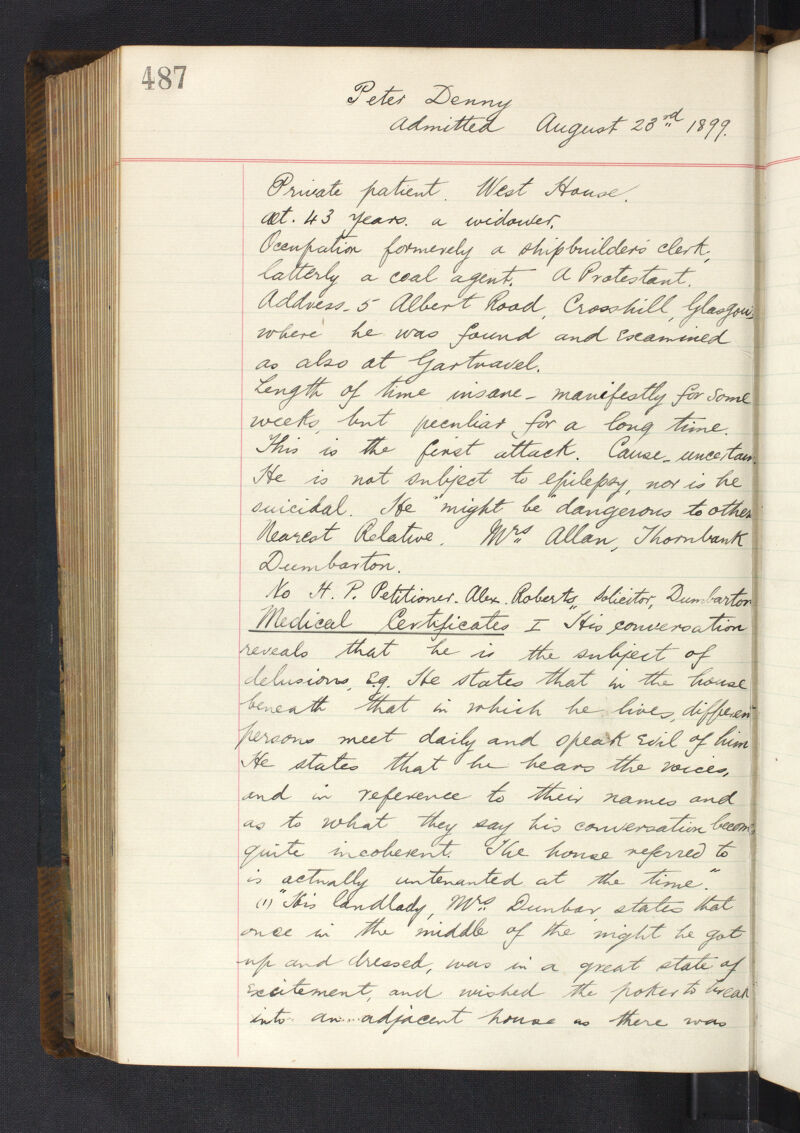 487
Peter Denny
Admitted August 23rd 1899.
Private patient. West House.
aet. 43 years. a widower.
Occupation formerely a shipbuilder's clerk,
latterly a coal agent. A Protestant.
Address - 5 Albert Road, Crosshill, Glasgow,
where he was found and examined
as also at Gartnavel.
Length of time insane - manifestly for some
weeks, but peculiar for a long time.
This is the first attack. Cause - uncertain.
He is not subject to epilepsy, nor is he
suicidal. He "might be" dangerous to others
Nearest Relative. Mrs Allan, Thornbank
Dumbarton.
No H. P. Petitioner. Alex. Roberts, Solicitor, Dumbarton
Medical Certificates I "His conversation
reveals that he is the subject of
delusions, e.g. He states that in the house
beneath that in which he lives, different
persons meet daily and speak evil of him
He states that he hears the voices,
and in reference to their names and
as to what they say his conversation becomes
quite incoherent. The house referred to
is actually untenanted at the time."
(1) "His landlady, Mrs Dunbar, states that
once in the middle of the night he got
up and dressed, was in a great state of
excitement, and wished the poker to break
into an adjacent house as there was